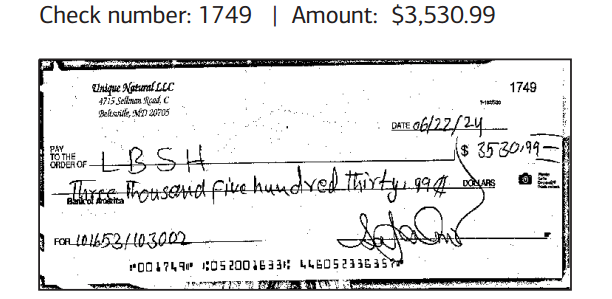 Check number: 1749 | Amount: $3,530.99
Unique Natural LLC
4715 Sellman Road, C
Beltsville, MD 20705
1749
DATE 06/22/24
PAY TO THE ORDER OF LBSH $ 3530.99
Three thousand five hundred thirty, 99 DOLLARS
Bank of America
FOR 101653/103002
⑈001749⑈ ⑆052001633⑆ 446052336357⑈